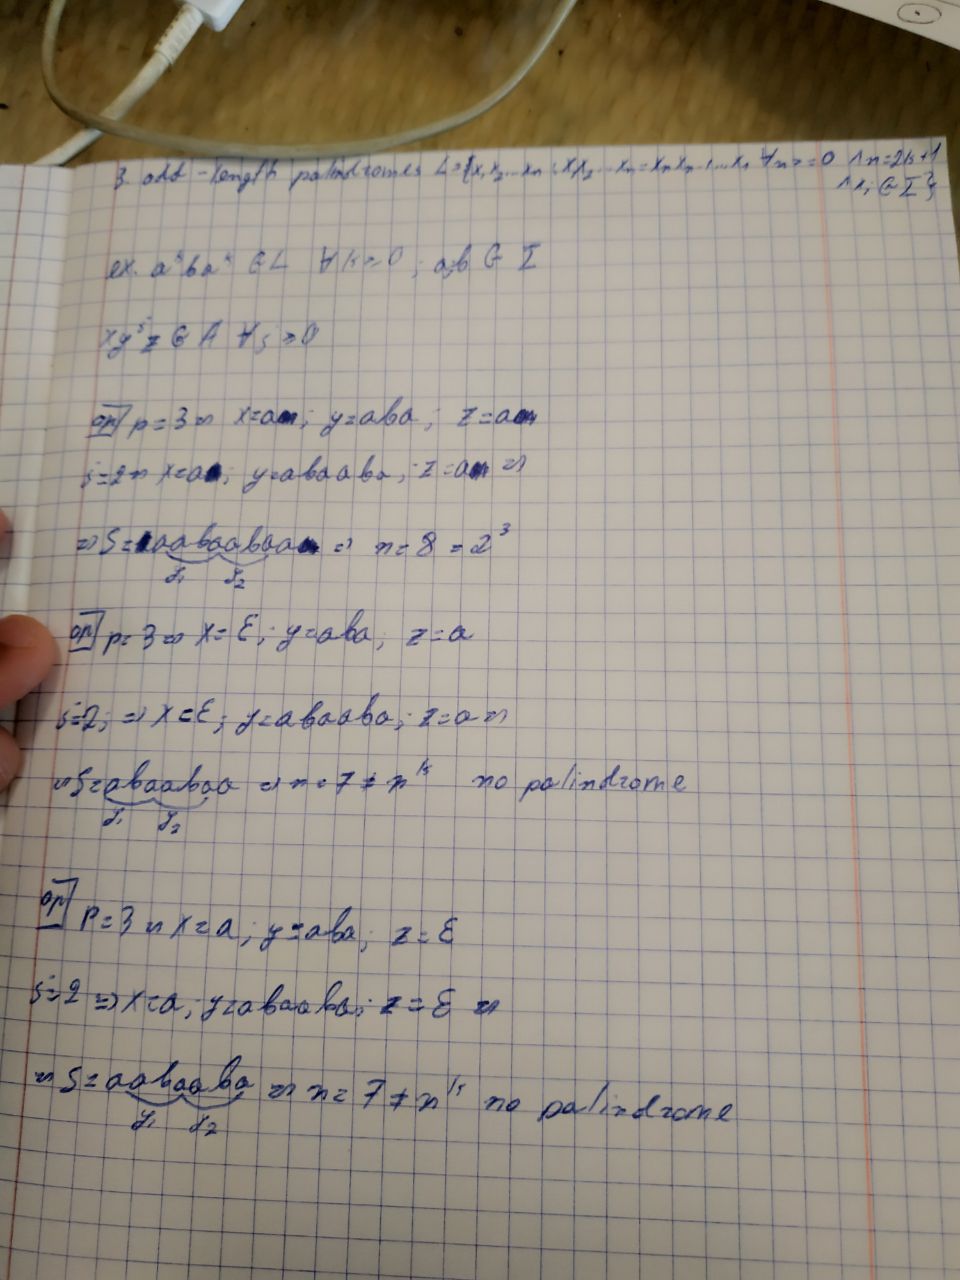 3. odd-length palindromes L={x₁x₂...xₙ : x₁x₂...xₙ = xₙxₙ₋₁...x₁ ∀n>=0 ∧ n=2k+1
∧ xᵢ ∈ Σ}
ex. aᵏbaᵏ ∈ L ∀k>=0; a,b ∈ Σ
xyⁱz ∈ A ∀i>=0
op p=3 => x=a; y=aba; z=a
i=2 => x=a; y=abaaba; z=a =>
=> S=aabaabaa => n=8=2³
y₁ y₂
op p=3 => x=ε; y=aba; z=a
i=2; => x=ε; y=abaaba; z=a =>
=> S=abaabaa => n=7≠nᵏ no palindrome
y₁ y₂
op p=3 => x=a; y=aba; z=ε
i=2 => x=a; y=abaaba; z=ε =>
=> S=aabaaba => n=7≠nᵏ no palindrome
y₁ y₂